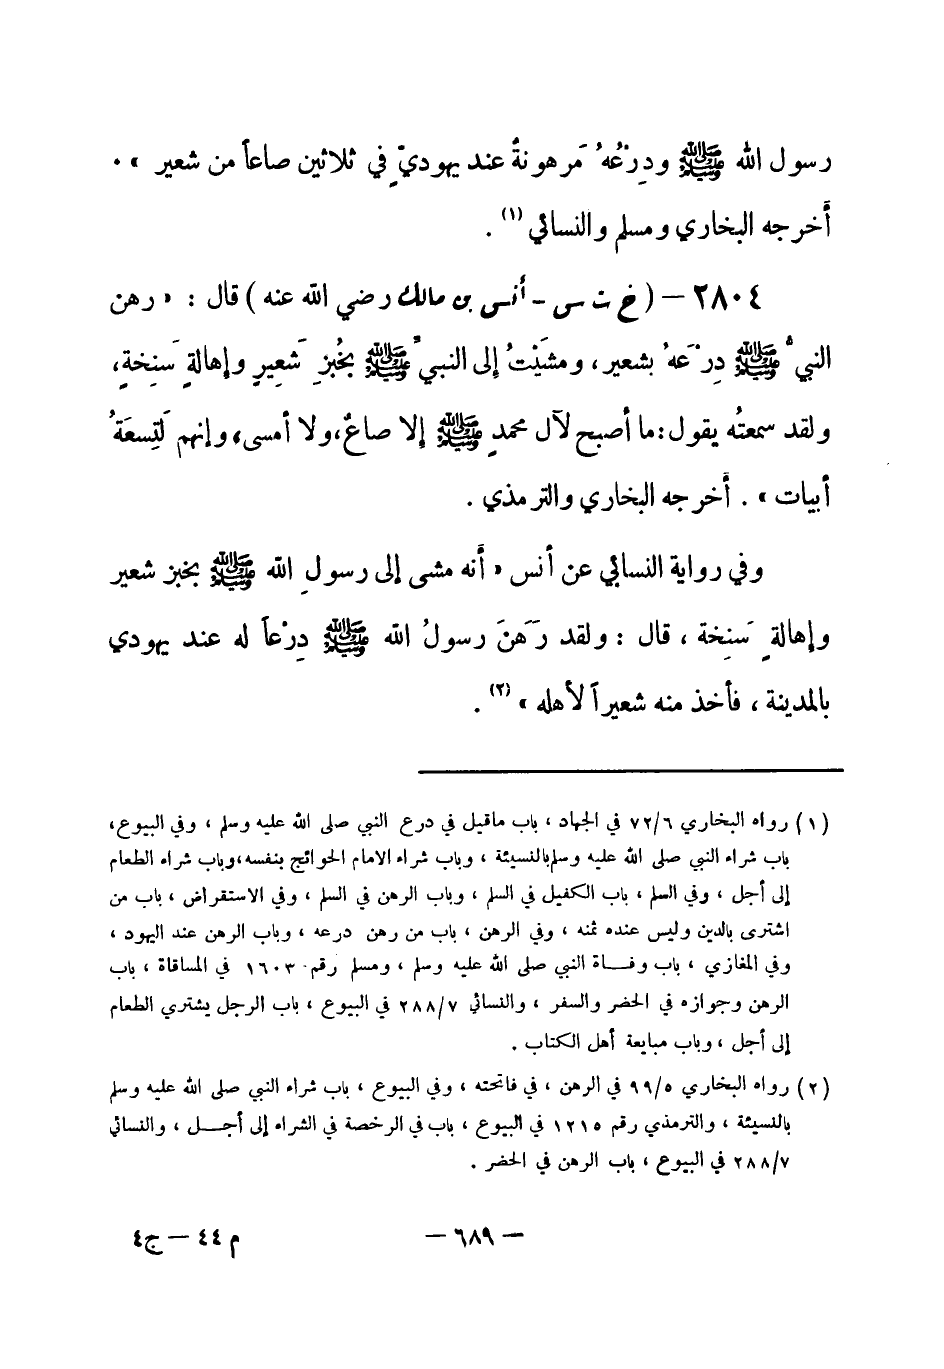 رسول الله ﷺ ودِرْعُهُ مَرهونةٌ عند يهوديٍّ في ثلاثين صاعاً من شعير » .
أخرجه البخاري ومسلم والنسائي (١) .
٢٨٠٤ – ( خ ت س – أنس بن مالك رضي الله عنه ) قال : « رهن
النبيُّ ﷺ دِرْعَهُ بشعير ، ومشَيْتُ إلى النبيِّ ﷺ بخُبزِ شَعِيرٍ وإهالةٍ سَنِخةٍ،
ولقد سمعتُه يقول : ما أصبح لآل محمدٍ ﷺ إلا صاعٌ، ولا أمسى، وإنهم لَتِسعَةُ
أبيات » . أخرجه البخاري والترمذي .
وفي رواية النسائي عن أنس « أنه مشى إلى رسولِ الله ﷺ بخبز شعير
وإهالةٍ سَنِخة ، قال : ولقد رَهَنَ رسولُ الله ﷺ دِرْعاً له عند يهودي
بالمدينة ، فأخذ منه شعيراً لأهله » (٢) .
(١) رواه البخاري ٧٢/٦ في الجهاد ، باب ماقيل في درع النبي صلى الله عليه وسلم ، وفي البيوع،
باب شراء النبي صلى الله عليه وسلم بالنسيئة ، وباب شراء الامام الحوائج بنفسه، وباب شراء الطعام
إلى أجل ، وفي السلم ، باب الكفيل في السلم ، وباب الرهن في السلم ، وفي الاستقراض ، باب من
اشترى بالدين وليس عنده ثمنه ، وفي الرهن ، باب من رهن درعه ، وباب الرهن عند اليهود ،
وفي المغازي ، باب وفــاة النبي صلى الله عليه وسلم ، ومسلم رقم ١٦٠٣ في المساقاة ، باب
الرهن وجوازه في الحضر والسفر ، والنسائي ٢٨٨/٧ في البيوع ، باب الرجل يشتري الطعام
إلى أجل ، وباب مبايعة أهل الكتاب .
(٢) رواه البخاري ٩٩/٥ في الرهن ، في فاتحته ، وفي البيوع ، باب شراء النبي صلى الله عليه وسلم
بالنسيئة ، والترمذي رقم ١٢١٥ في البيوع ، باب في الرخصة في الشراء إلى أجــل ، والنسائي
٢٨٨/٧ في البيوع ، باب الرهن في الحضر .
– ٦٨٩ – م ٤٤ – ج٤